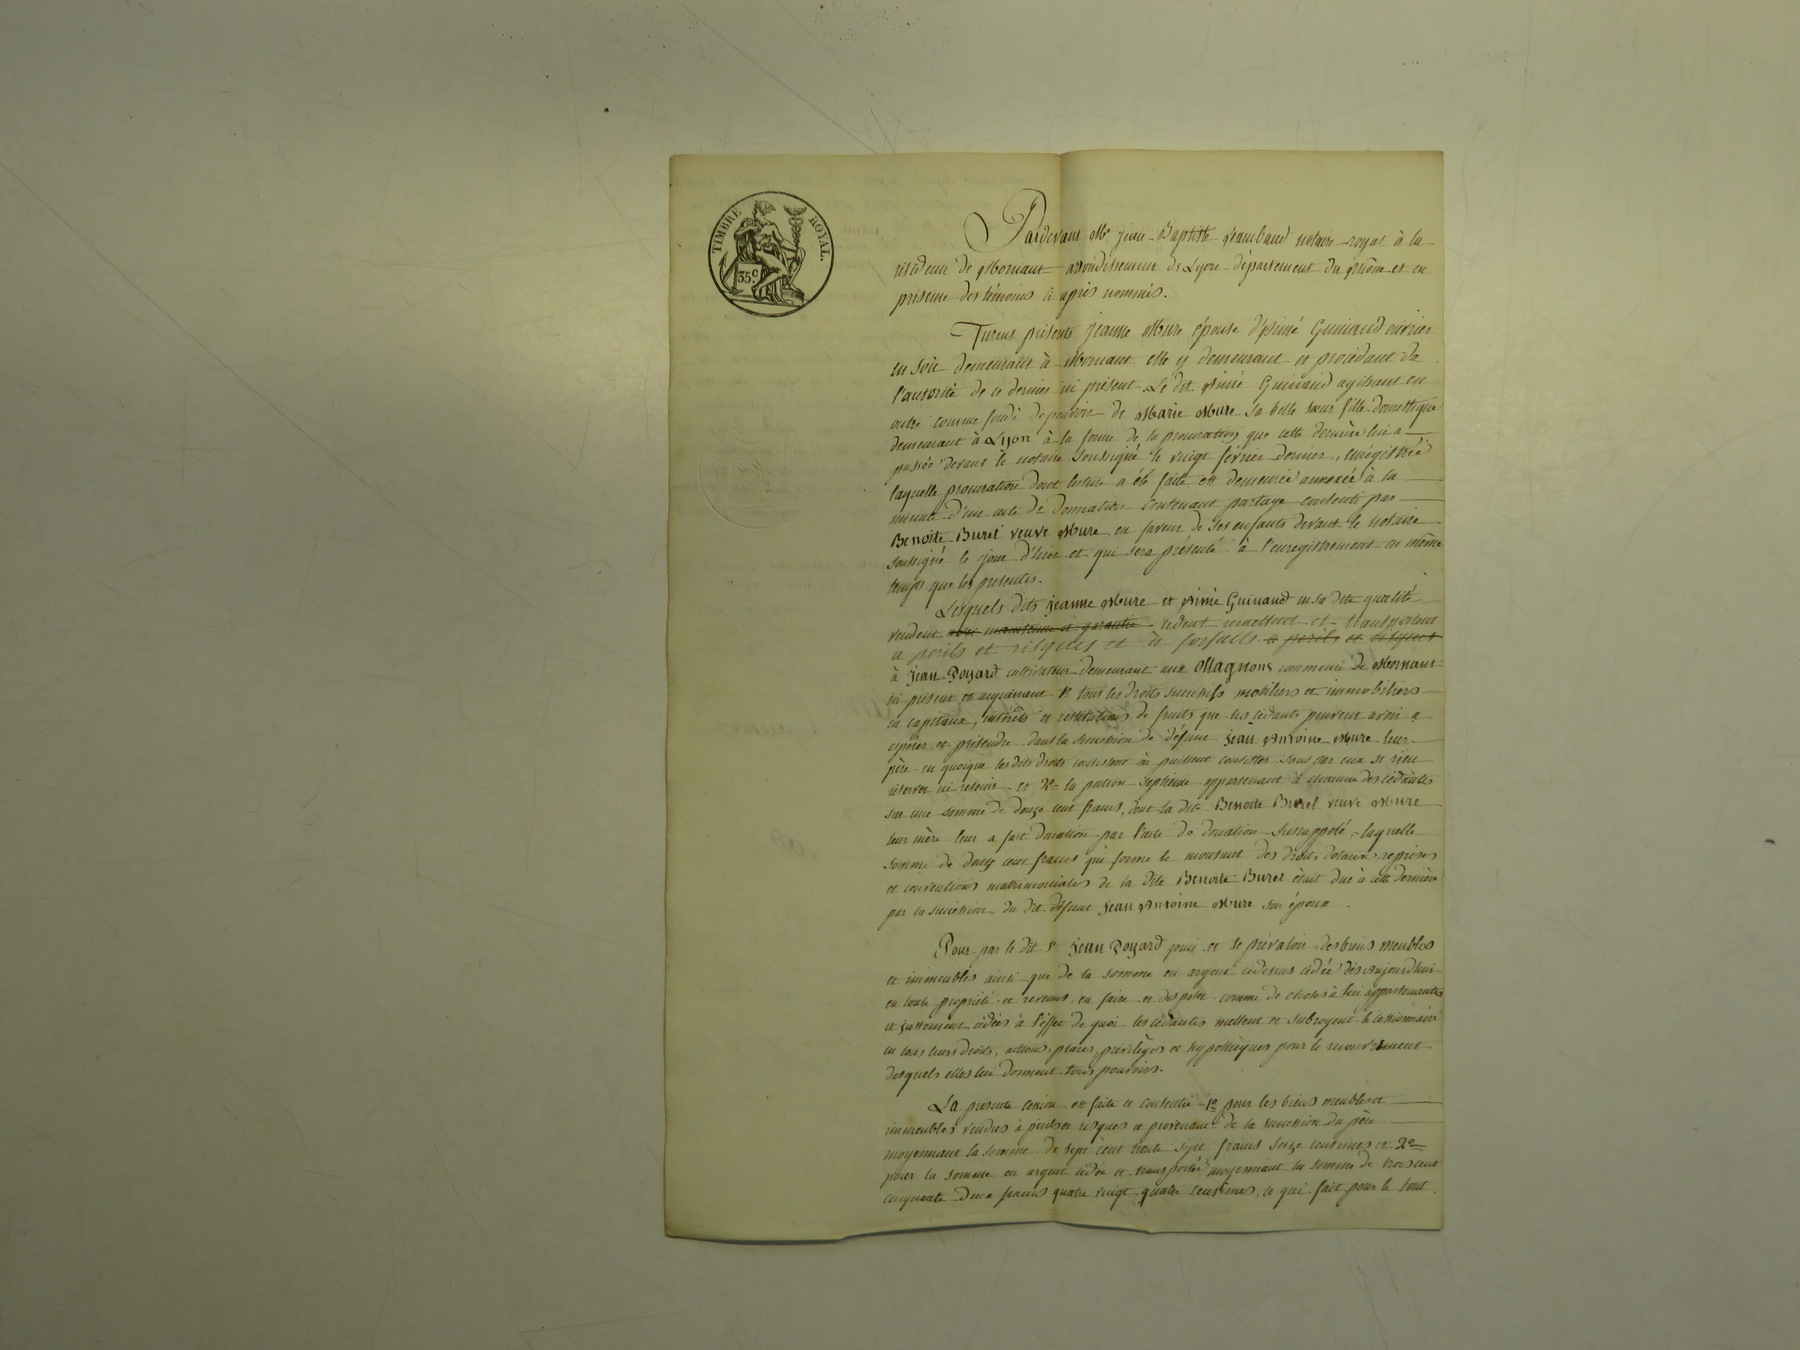 TIMBRE ROYAL.
35 c.
Pardevant Me Jean-Baptiste Rambaud notaire royal à la
résidence de Mornant arrondissement de Lyon département du Rhône et en
présence des témoins ci après nommés.
Furent présents Jeanne Mure épouse d'Aimé Guinand ouvrier
en soie demeurant à Mornant elle y demeurant et procédant de
l'autorité de ce dernier ici présent. Le dit Aimé Guinand agissant en
outre comme fondé de pouvoir de Marie Mure sa belle sœur fille domestique
demeurant à Lyon à la forme de la procuration que cette dernière lui a
passée devant le notaire soussigné le vingt février dernier, enregistrée
laquelle procuration dont lecture a été faite est demeurée annexée à la
minute d'un acte de donnation contenant partage consenti par
Benoite Buret veuve Mure en faveur de ses enfants devant le notaire
soussigné le jour d'hier et qui sera présenté à l'enregistrement en même
temps que les présentes.
Lesquels dits Jeanne Mure et Aimé Guinand en sa dite qualité
vendent avec maintenue et garantie cèdent remettent et transportent
a perils et risques et à forfaits a perils et risques
à Jean Poyard cultivateur demeurant aux Ollagnons commune de Mornant
ici présent et acquérant 1º tous les droits successifs mobiliers et immobiliers
en capitaux, intérêts et restitutions de fruits que les cédants peuvent avoir a
espérer et prétendre dans la succession de défunt Jean Antoine Mure leur
père en quoique les dits droits consistent ou puissent consister sans par eux se rien
réserver ni retenir et 2º la portion septième appartenant à chacune des cédantes
sur une somme de douze cent francs, dont la dite Benoite Buret veuve Mure
leur mère leur a fait donation par l'acte de donation susrappelé, laquelle
somme de douze cent francs qui forme le montant des droits dotaux, reprises
et conventions matrimoniales de la dite Benoite Buret était due à cette dernière
par la succession du dit défunt Jean Antoine Mure son époux.
Pour par le dit Sr Jean Poyard jouir et se prévaloir des biens meubles
et immeubles ainsi que de la somme en argent cidessus cédée dès aujourd'hui
en toute propriété et revenus, en faire et disposer comme de choses à lui appartenantes
et justement cédées à l'effet de quoi les cédantes mettent et subrogent le cessionnaire
en tous leurs droits, actions, places, privilèges et hypothèques pour le recouvrement
desquels elles lui donnent tous pouvoirs.
La présente cession est faite et consentie 1º pour les biens meubles et
immeubles vendus à perils et risques et provenant de la succession du père
moyennant la somme de sept cent trente sept francs seize centimes et 2º
pour la somme en argent cédée et transportée moyennant la somme de trois cent
cinquante deux francs quatre vingt quatre centimes, ce qui fait pour le tout